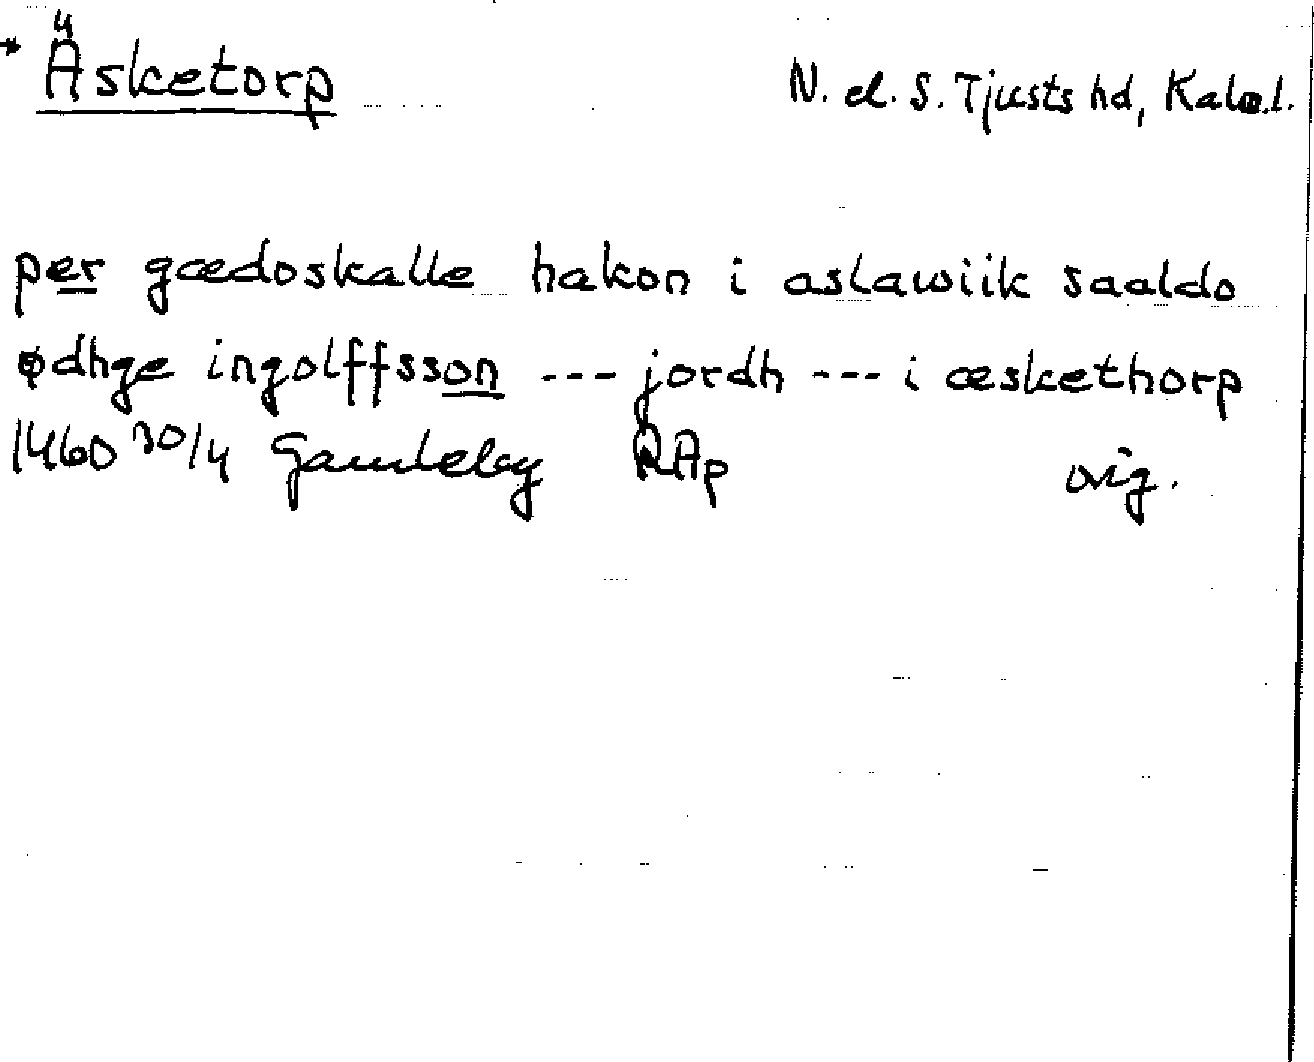 * Äsketorp N. el. S. Tjusts hd, Kalm.l.
per gædoskalle hakon i aslawiik saaldo
ødhge ingolffsson --- jordh --- i æskethorp
1460 30/4 Gamleby RAp orig.